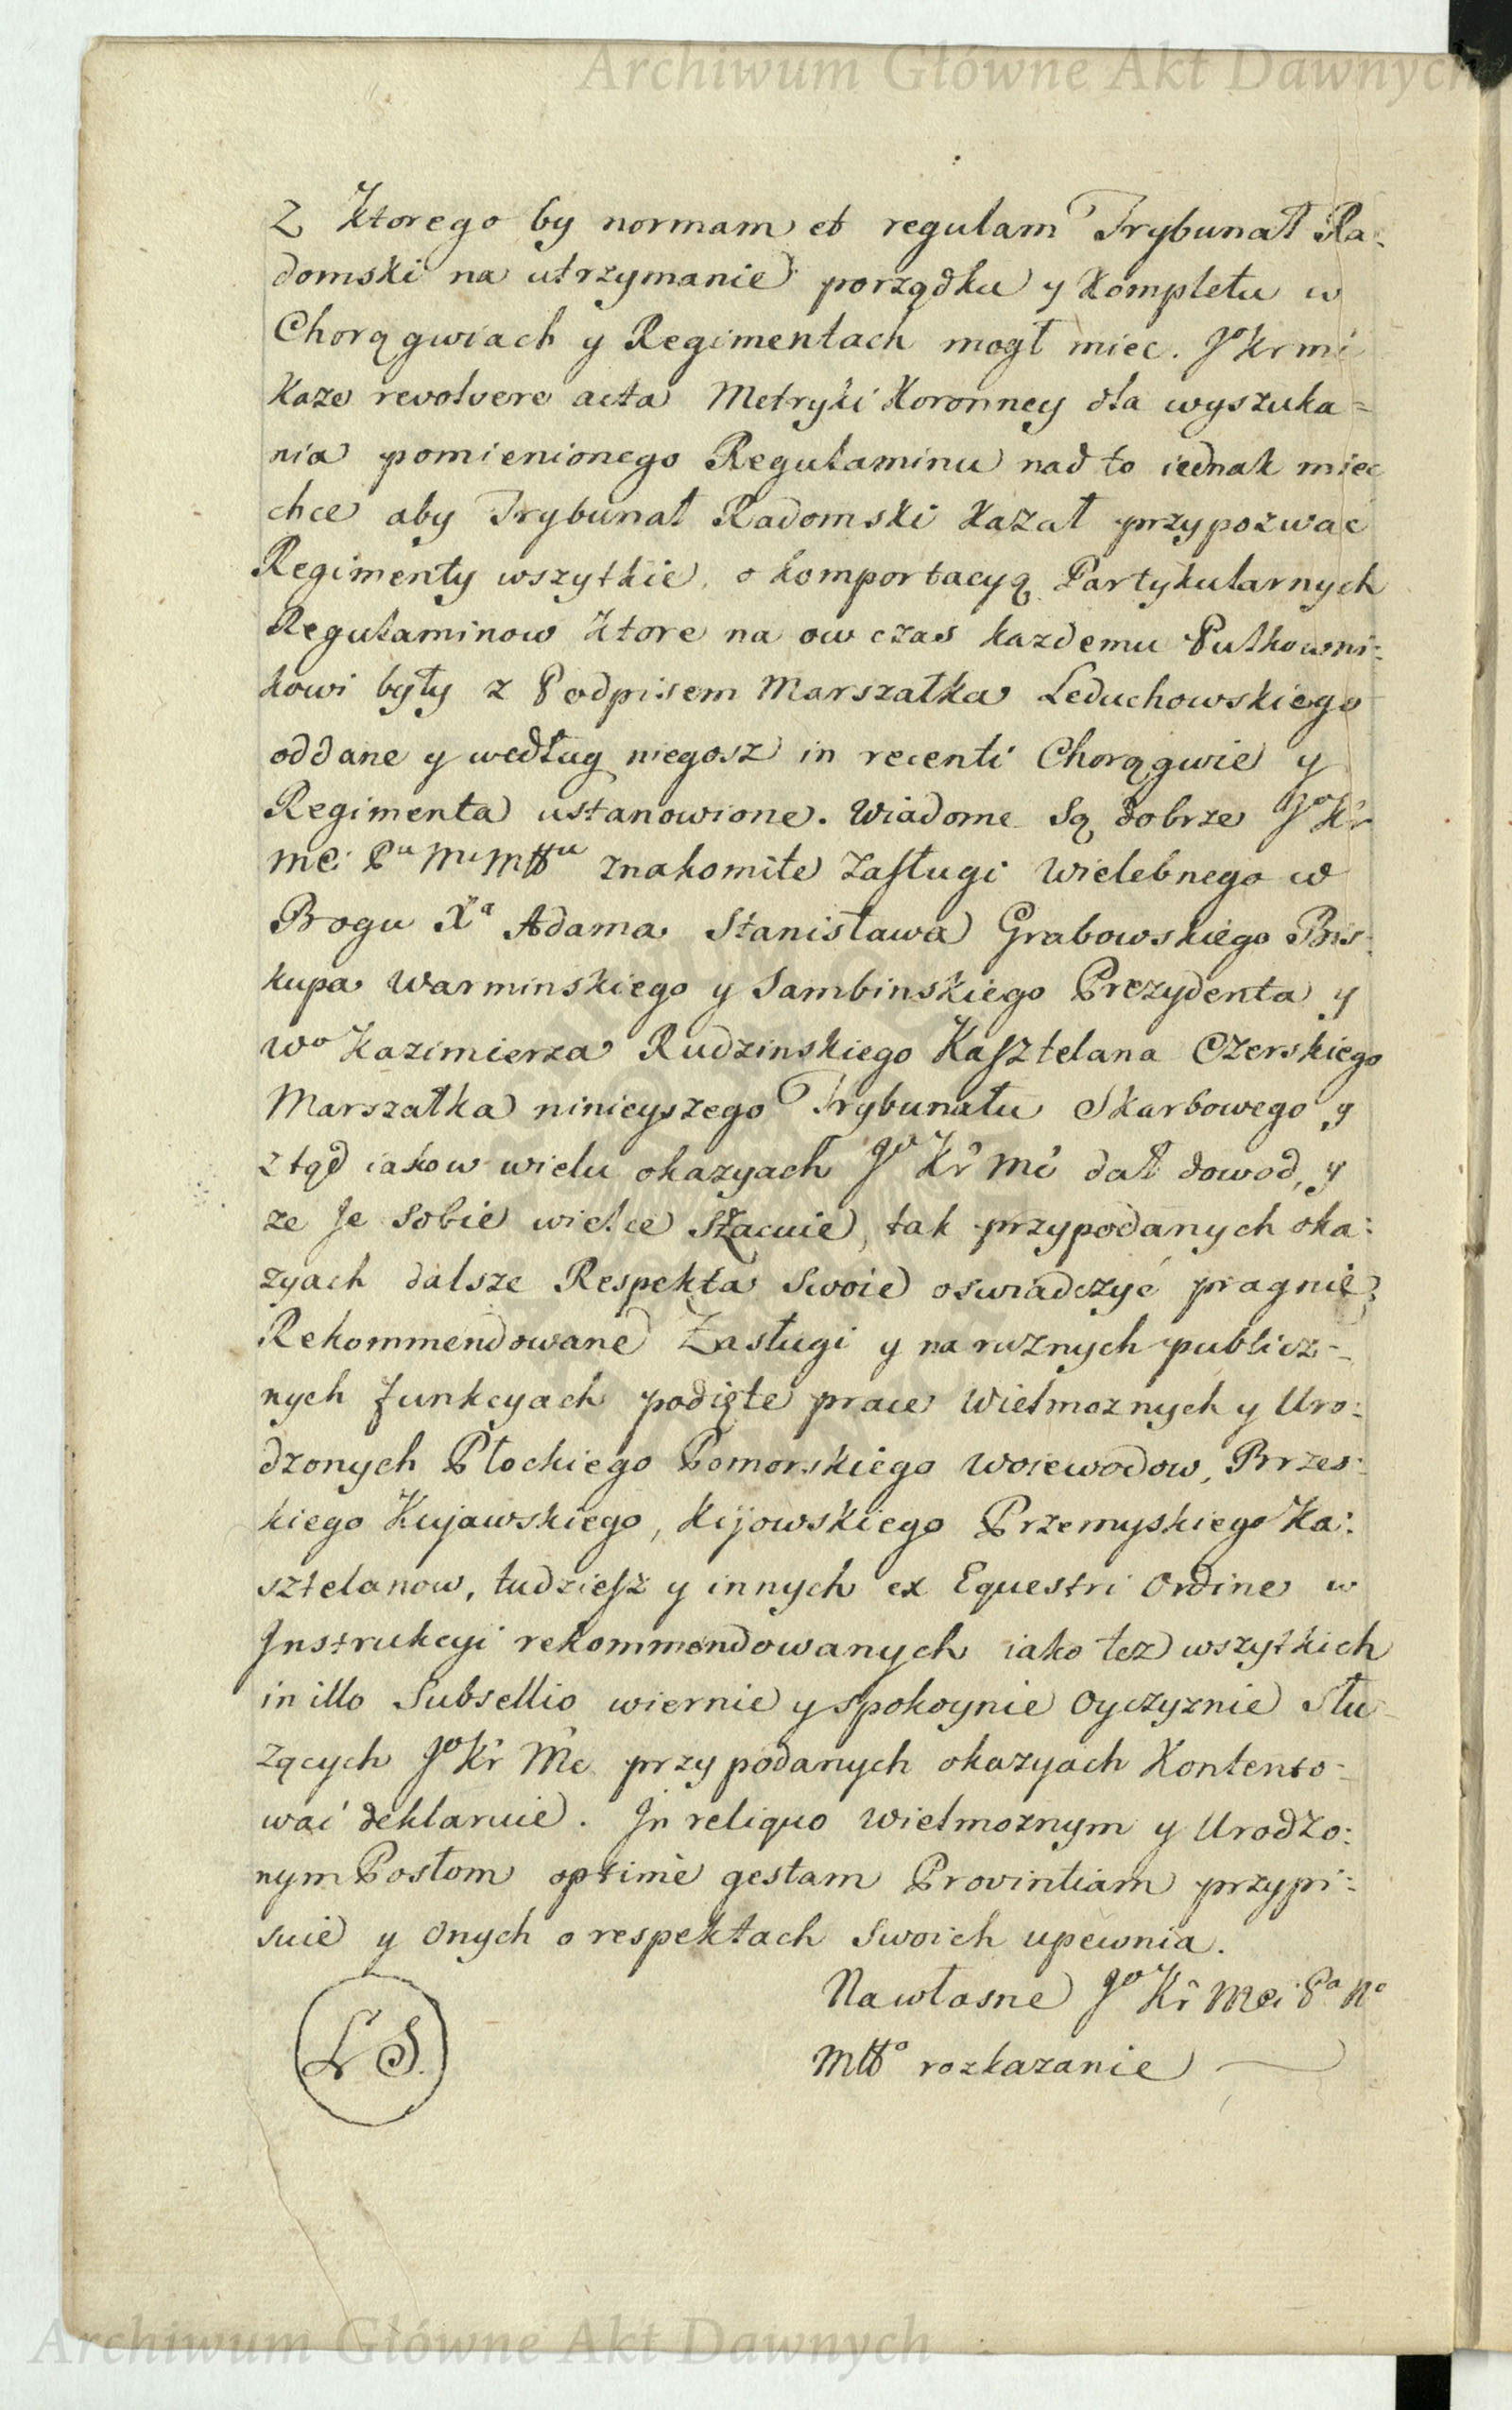 Archiwum Główne Akt Dawnych
Z Ktorego by normam et regulam Trybunał Ra:
domski na utrzymanie porządku y Kompletu w
Chorągwiach y Regimentach mogł miec. Jº Kr mć
Kaze revolvere acta Metryki Koronney dla wyszuka=
nia pomienionego Regulaminu nad to iednak miec
chce aby Trybunał Radomski Kazał przypozwać
Regimenty wszytkie o komportacyą Partykularnych
Regulaminow Ktore na ow czas kazdemu Pułkowni:
kowi były z Podpisem Marszałka Leduchowskiego
oddane y według niegosz in recenti Chorągwie y
Regimenta ustanowione. Wiadome Są dobrze Jº Kr
znakomite zasługi Wielebnego w
Bogu Xª Adama Stanisława Grabowskiego Bis:
kupa Warminskiego y Sambinskiego Prezydenta y
Wº Kazimierza Rudzinskiego Kasztelana Czerskiego
Marszałka ninieyszego Trybunału Skarbowego y
ztąd iako w wielu okazyach Jº Kr Mć dał dowod, y
ze Je Sobie wielce Szacuie, tak przypodanych oka:
zyach dalsze Respekta Swoie oswiadczyć pragnie,
Rekommendowane Zasługi y na roznych publicz=
nych funkcyach podięte prace Wielmoznych y Uro:
dzonych Płockiego Pomorskiego Woiewodow, Brzes:
kiego Kujawskiego, Kijowskiego Przemyskiego Ka:
sztelanow, tudziesz y innych ex Equestri Ordine w
Instrukcyi rekommendowanych iako tez wszytkich
in illo Subsellio wiernie y spokoynie Oyczyznie Słu=
zących Jº Kr Mć przy podanych okazyach Kontento=
wać deklaruie. In reliquo Wielmoznym y Urodzo:
nym Posłom optimè gestam Provintiam przypi:
suie y Onych o respektach Swoich upewnia.
Na własne Jº Kr Mći Pª Nº
Młłº rozkazanie
L S.
Archiwum Główne Akt Dawnych